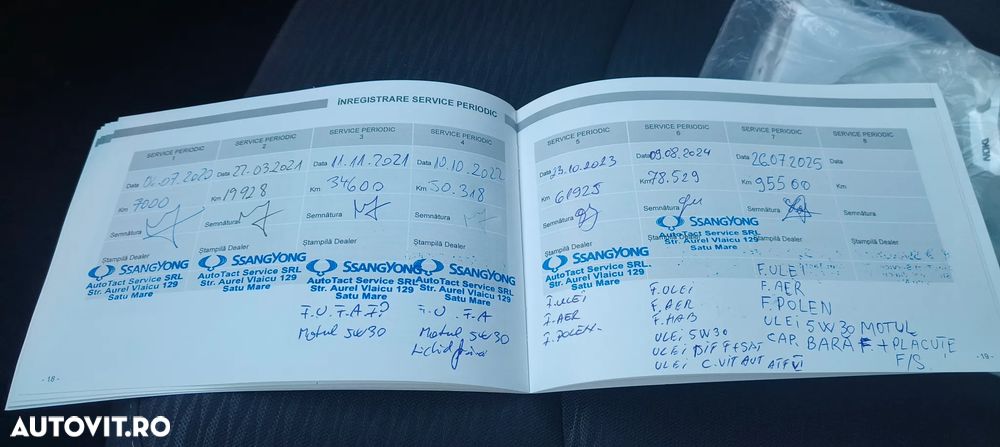 ÎNREGISTRARE SERVICE PERIODIC
SERVICE PERIODIC 1
SERVICE PERIODIC 2
SERVICE PERIODIC 3
SERVICE PERIODIC 4
Data 06.07.2020
Data 22.03.2021
Data 11.11.2021
Data 10.10.2022
Km 7000
Km 19928
Km 34600
Km 50.318
Semnătura
Semnătura
Semnătura
Semnătura
Ștampilă Dealer
Ștampilă Dealer
Ștampilă Dealer
Ștampilă Dealer
SSANGYONG
AutoTact Service SRL
Str. Aurel Vlaicu 129
Satu Mare
SSANGYONG
AutoTact Service SRL
Str. Aurel Vlaicu 129
Satu Mare
SSANGYONG
AutoTact Service SRL
Str. Aurel Vlaicu 129
Satu Mare
SSANGYONG
AutoTact Service SRL
Str. Aurel Vlaicu 129
Satu Mare
F.U. F.A F?
Motul 5W30
F.U. F.A
Motul 5W30
Lichid
- 18 -
SERVICE PERIODIC 5
SERVICE PERIODIC 6
SERVICE PERIODIC 7
SERVICE PERIODIC 8
Data 23.10.2023
Data 09.08.2024
Data 26.07.2025
Data
Km 61925
Km 78.529
Km 95500
Km
Semnătura
Semnătura
Semnătura
Semnătura
Ștampilă Dealer
Ștampilă Dealer
Ștampilă Dealer
Ștampilă Dealer
SSANGYONG
AutoTact Service SRL
Str. Aurel Vlaicu 129
Satu Mare
SSANGYONG
AutoTact Service SRL
Str. Aurel Vlaicu 129
Satu Mare
F.ULEI
F.AER
F.POLEN
F.ULEI
F.AER
F.HAB
ULEI 5W30
ULEI DIF F+SPAT
ULEI C.VIT AUT ATF VI
F.ULEI
F.AER
F.POLEN
ULEI 5W30 MOTUL
CAP. BARA F. + PLACUȚE
F/S.
- 19 -
AUTOVIT.RO